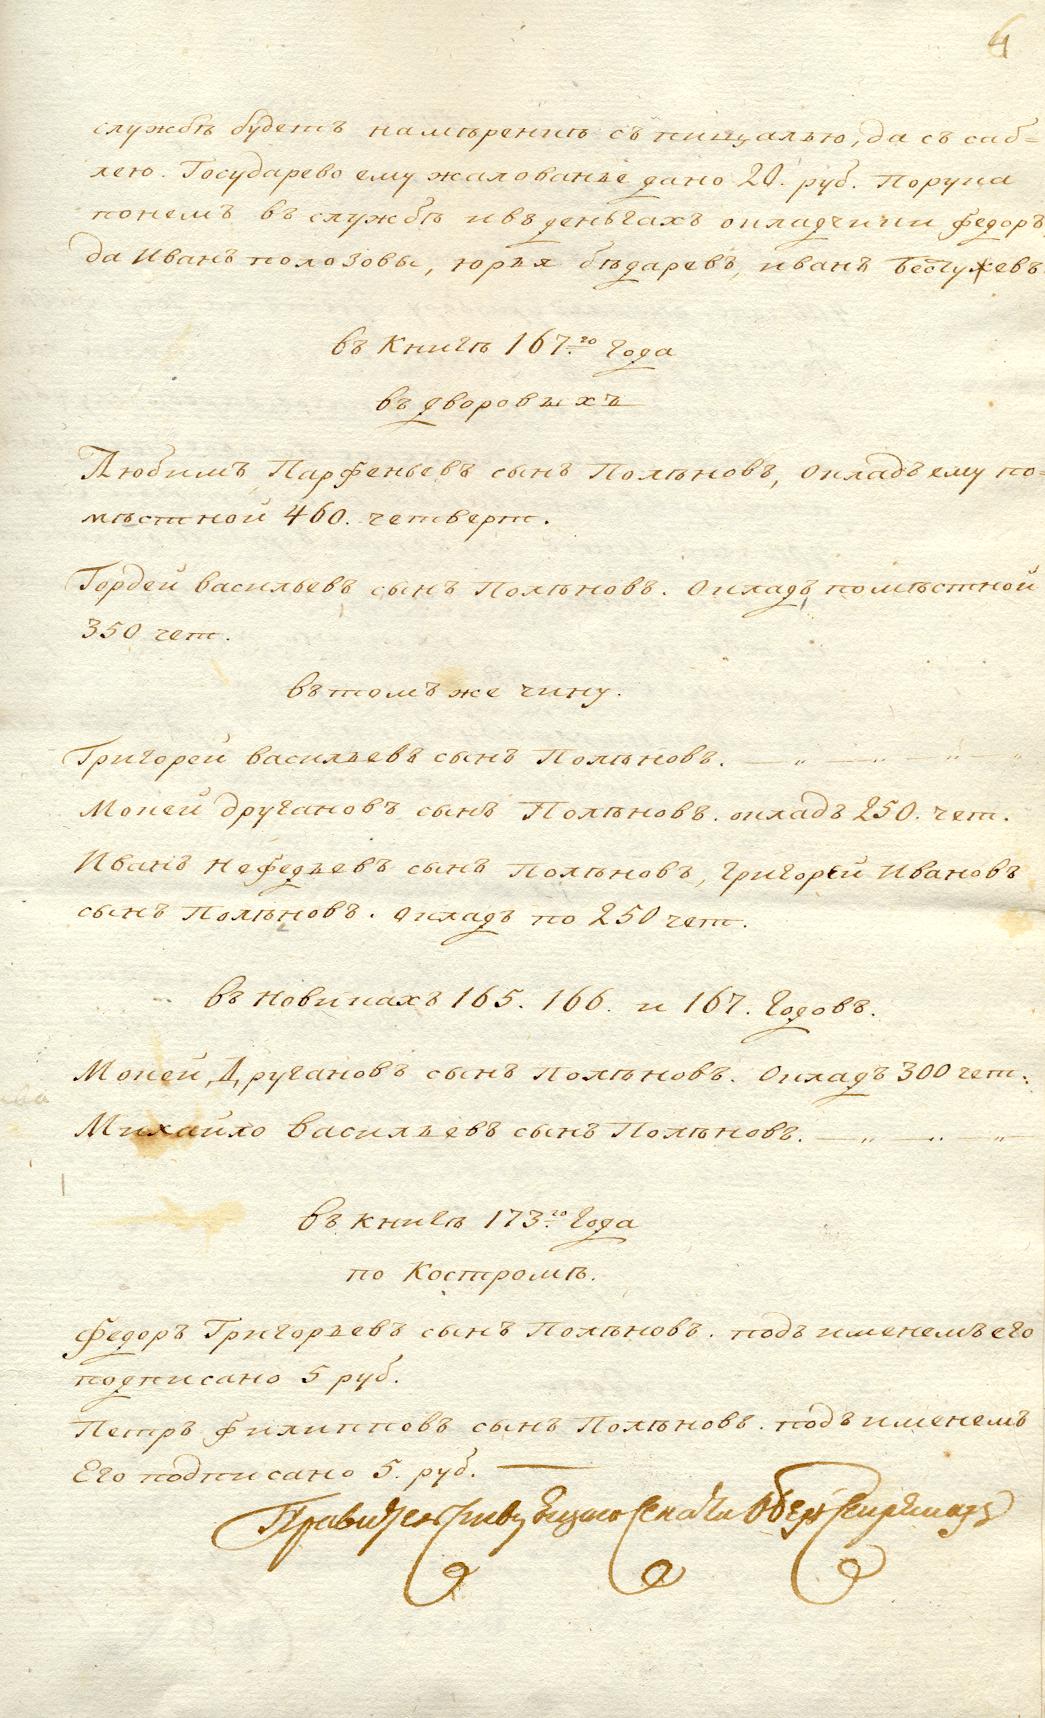 4
службѣ будетъ намѣренiѣ съ пищалью, да съ саб=
лею. Государево ему жалованье дано 20. руб. Порука
понемъ въ службѣ ивъ деньгахъ окладчики Федоръ,
да Иванъ полозовы, юрья бѣдаревъ, иванъ
въ Книгѣ 167.го Года
въ дворовыхъ
Любимъ Парфеньевъ сынъ Полѣновъ, Окладъ ему по=
мѣстной 460. четверт.
Гордей васильевъ сынъ Полѣновъ. Окладъ помѣстной
350 чет.
въ томъ же чину.
Григорей васильевъ сынъ Полѣновъ. — „ — „ — „ — „
Мокей другановъ сынъ Полѣновъ. окладъ 250. чет.
Иванъ Нефедьевъ сынъ Полѣновъ, григорей Ивановъ
сынъ Полѣновъ. Окладъ по 250 чет.
въ новикахъ 165. 166. и 167. Годовъ.
Мокей, Другановъ сынъ Полѣновъ. Окладъ 300 чет.
Михайло васильевъ сынъ Полѣновъ. — „ — „ — „
въ книгѣ 173.го Года
по Костромѣ.
Федоръ Григорьевъ сынъ Полѣновъ. подъ именемъ его
подписано 5 руб.
Петръ Филипповъ сынъ Полѣновъ. подъ именемъ
Его подписано 5. руб. —